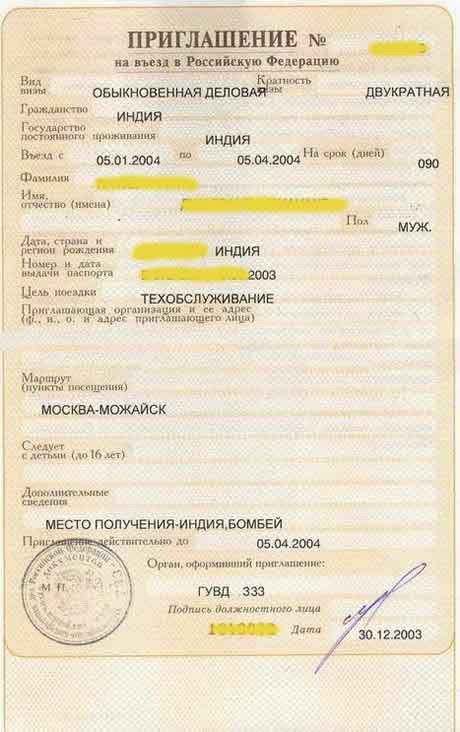 ПРИГЛАШЕНИЕ №
на въезд в Российскую Федерацию
Вид визы ОБЫКНОВЕННАЯ ДЕЛОВАЯ Кратность визы ДВУКРАТНАЯ
Гражданство ИНДИЯ
Государство постоянного проживания ИНДИЯ
Въезд с 05.01.2004 по 05.04.2004 На срок (дней) 090
Фамилия
Имя,
отчество (имена)
Пол МУЖ.
Дата, страна и
регион рождения ИНДИЯ
Номер и дата
выдачи паспорта 2003
Цель поездки ТЕХОБСЛУЖИВАНИЕ
Приглашающая организация и ее адрес
(ф., и., о. и адрес приглашающего лица)
Маршрут
(пункты посещения)
МОСКВА-МОЖАЙСК
Следует
с детьми (до 16 лет)
Дополнительные
сведения
МЕСТО ПОЛУЧЕНИЯ-ИНДИЯ,БОМБЕЙ
Приглашение действительно до 05.04.2004
Орган, оформивший приглашение:
М П.
ГУВД 333
Подпись должностного лица
Дата 30.12.2003